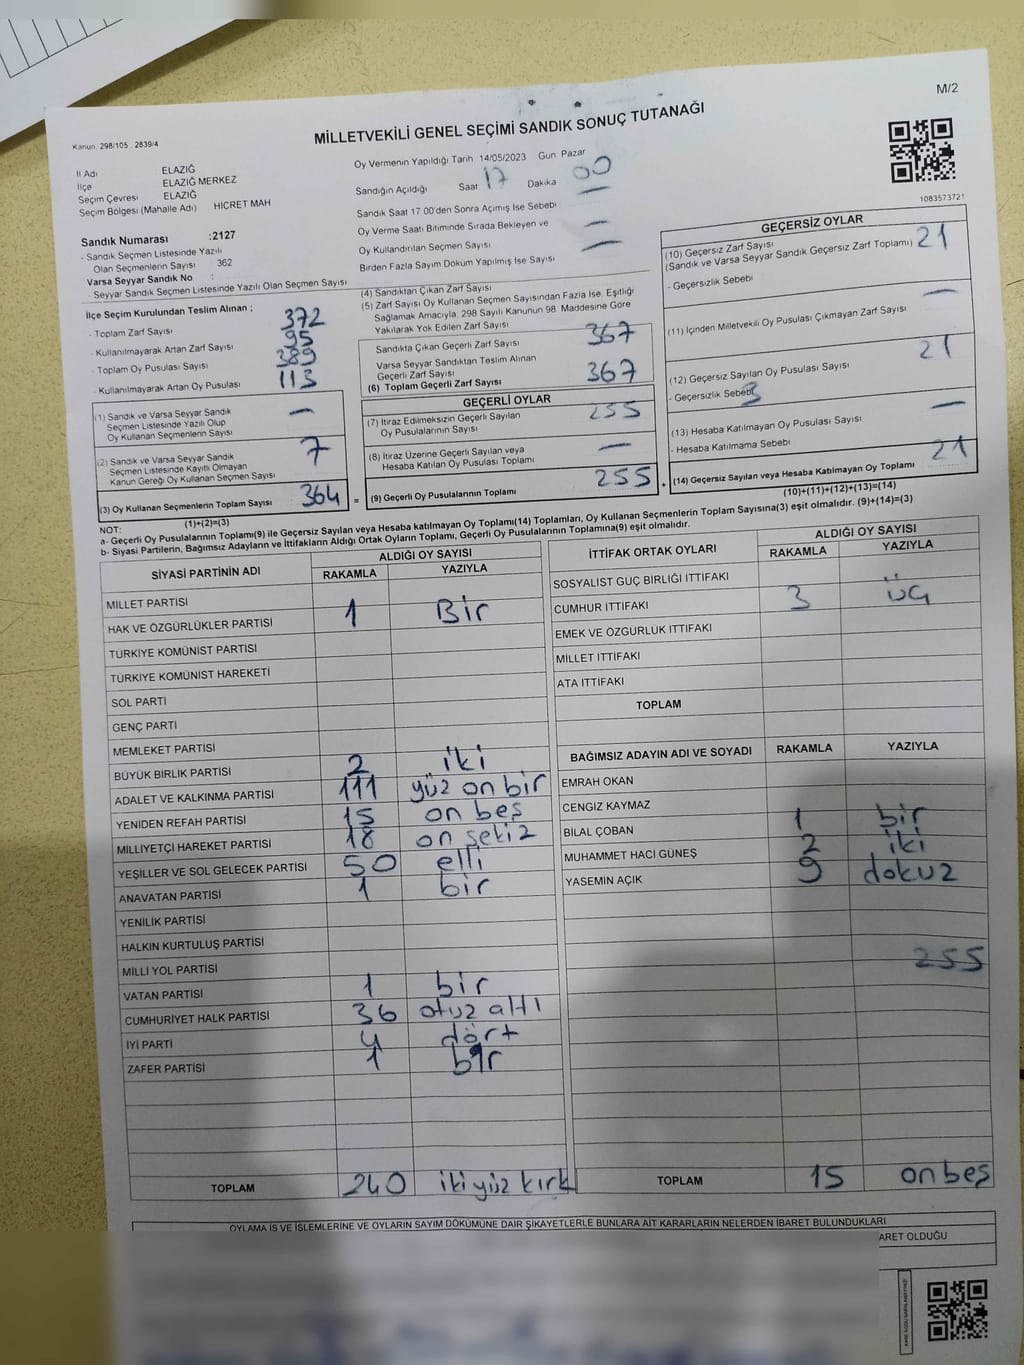 M/2
Kanun: 298/105 , 2839/4
MİLLETVEKİLİ GENEL SEÇİMİ SANDIK SONUÇ TUTANAĞI
İl Adı : ELAZIĞ
İlçe ELAZIĞ MERKEZ
Seçim Çevresi ELAZIĞ
Seçim Bölgesi (Mahalle Adı) HİCRET MAH
Sandık Numarası :2127
- Sandık Seçmen Listesinde Yazılı
Olan Seçmenlerin Sayısı 362
Varsa Seyyar Sandık No :
- Seyyar Sandık Seçmen Listesinde Yazılı Olan Seçmen Sayısı
Oy Vermenin Yapıldığı Tarih 14/05/2023 Gün Pazar
Sandığın Açıldığı Saat 17 Dakika 00
Sandık Saat 17 00'den Sonra Açımış İse Sebebi —
Oy Verme Saati Bitiminde Sırada Bekleyen ve
Oy Kullandırılan Seçmen Sayısı —
Birden Fazla Sayım Döküm Yapılmış İse Sayısı —
1083573721
İlçe Seçim Kurulundan Teslim Alınan ;
- Toplam Zarf Sayısı 372
- Kullanılmayarak Artan Zarf Sayısı 95
- Toplam Oy Pusulası Sayısı 389
- Kullanılmayarak Artan Oy Pusulası 113
(1) Sandık ve Varsa Seyyar Sandık
Seçmen Listesinde Yazılı Olup
Oy Kullanan Seçmenlerin Sayısı —
(2) Sandık ve Varsa Seyyar Sandık
Seçmen Listesinde Kayıtlı Olmayan
Kanun Gereği Oy Kullanan Seçmen Sayısı 7
(3) Oy Kullanan Seçmenlerin Toplam Sayısı 364
(1)+(2)=(3)
(4) Sandıktan Çıkan Zarf Sayısı
(5) Zarf Sayısı Oy Kullanan Seçmen Sayısından Fazla İse, Eşitliği
Sağlamak Amacıyla, 298 Sayılı Kanunun 98. Maddesine Göre
Yakılarak Yok Edilen Zarf Sayısı
Sandıkta Çıkan Geçerli Zarf Sayısı 367
Varsa Seyyar Sandıktan Teslim Alınan
Geçerli Zarf Sayısı
(6) Toplam Geçerli Zarf Sayısı 367
GEÇERLİ OYLAR
(7) İtiraz Edilmeksizin Geçerli Sayılan
Oy Pusulalarının Sayısı 255
(8) İtiraz Üzerine Geçerli Sayılan veya
Hesaba Katılan Oy Pusulası Toplamı —
= (9) Geçerli Oy Pusulalarının Toplamı 255 +
GEÇERSİZ OYLAR
(10) Geçersiz Zarf Sayısı 21
(Sandık ve Varsa Seyyar Sandık Geçersiz Zarf Toplamı)
- Geçersizlik Sebebi
(11) İçinden Milletvekili Oy Pusulası Çıkmayan Zarf Sayısı —
(12) Geçersiz Sayılan Oy Pusulası Sayısı 21
- Geçersizlik Sebebi 3
(13) Hesaba Katılmayan Oy Pusulası Sayısı —
- Hesaba Katılmama Sebebi
(14) Geçersiz Sayılan veya Hesaba Katılmayan Oy Toplamı 21
(10)+(11)+(12)+(13)=(14)
NOT:
a- Geçerli Oy Pusulalarının Toplamı(9) ile Geçersiz Sayılan veya Hesaba katılmayan Oy Toplamı(14) Toplamları, Oy Kullanan Seçmenlerin Toplam Sayısına(3) eşit olmalıdır. (9)+(14)=(3)
b- Siyasi Partilerin, Bağımsız Adayların ve İttifakların Aldığı Ortak Oyların Toplamı, Geçerli Oy Pusulalarının Toplamına(9) eşit olmalıdır.
SİYASİ PARTİNİN ADI ALDIĞI OY SAYISI
RAKAMLA YAZIYLA
MİLLET PARTİSİ
HAK VE ÖZGÜRLÜKLER PARTİSİ 1 Bir
TÜRKİYE KOMÜNİST PARTİSİ
TÜRKİYE KOMÜNİST HAREKETİ
SOL PARTİ
GENÇ PARTİ
MEMLEKET PARTİSİ
BÜYÜK BİRLİK PARTİSİ 2 iki
ADALET VE KALKINMA PARTİSİ 111 yüz on bir
YENİDEN REFAH PARTİSİ 15 on beş
MİLLİYETÇİ HAREKET PARTİSİ 18 on sekiz
YEŞİLLER VE SOL GELECEK PARTİSİ 50 elli
ANAVATAN PARTİSİ 1 bir
YENİLİK PARTİSİ
HALKIN KURTULUŞ PARTİSİ
MİLLİ YOL PARTİSİ
VATAN PARTİSİ 1 bir
CUMHURİYET HALK PARTİSİ 36 otuz altı
İYİ PARTİ 4 dört
ZAFER PARTİSİ 1 bir
TOPLAM 240 iki yüz kırk
İTTİFAK ORTAK OYLARI ALDIĞI OY SAYISI
RAKAMLA YAZIYLA
SOSYALİST GÜÇ BİRLİĞİ İTTİFAKI
CUMHUR İTTİFAKI 3 üç
EMEK VE ÖZGÜRLÜK İTTİFAKI
MİLLET İTTİFAKI
ATA İTTİFAKI
TOPLAM
BAĞIMSIZ ADAYIN ADI VE SOYADI RAKAMLA YAZIYLA
EMRAH OKAN
CENGİZ KAYMAZ
BİLAL ÇOBAN 1 bir
MUHAMMET HACİ GÜNEŞ 2 iki
YASEMİN AÇIK 9 dokuz
255
TOPLAM 15 on beş
OYLAMA İŞ VE İŞLEMLERİNE VE OYLARIN SAYIM DÖKÜMÜNE DAİR ŞİKAYETLERLE BUNLARA AİT KARARLARIN NELERDEN İBARET BULUNDUKLARI
ARET OLDUĞU